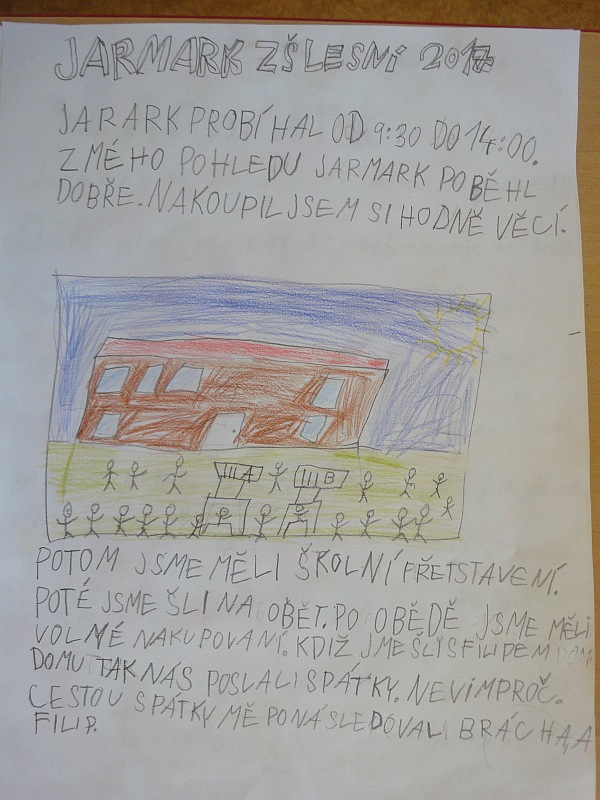 JARMARK ZŠ LESNÍ 2017
JARARK PROBÍHAL OD 9:30 DO 14:00.
Z MÉHO POHLEDU JARMARK POBĚHL
DOBŘE. NAKOUPIL JSEM SI HODNĚ VĚCÍ.
III A
III B
POTOM JSME MĚLI ŠKOLNÍ PŘETSTAVENÍ.
POTÉ JSME ŠLI NA OBĚT. PO OBĚDĚ JSME MĚLI
VOLNÉ NAKUPOVANÍ. KDIŽ JME ŠLI S FILIPEM DOM
DOMU TAK NÁS POSLALI SPÁTKY. NEVÍM PROČ.
CESTOU SPÁTKY MĚ PONÁSLEDOVAL BRÁCHA, A
FILIP.